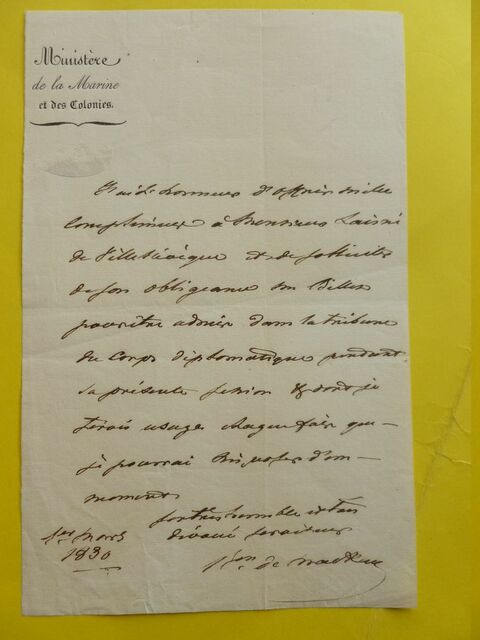 Ministère
de la Marine
et des Colonies.
J'ai l'honneur d'offrir mille
complimens à Monsieur Laisné
de Villevêque et de solliciter
de son obligeance un Billet
pour être admis dans la tribune
du Corps diplomatique pendant
la présente session & dont je
ferais usage chaque fois que
je pourrai disposer d'un
moment
son très humble et très
dévoué serviteur
1er mars
1830
Bon de Mackau